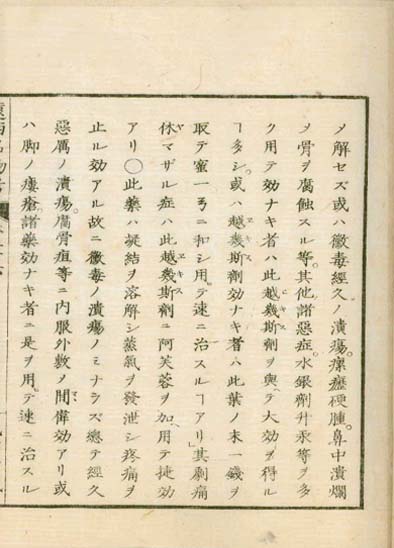 メ解セズ或ハ黴毒經久ノ潰瘍。瘰癧硬腫。鼻中潰爛
メ骨ヲ腐蝕スル等。其他諸惡症。水銀劑升汞等ヲ多
ク用テ効ナキ者ハ此越幾斯劑ヲ與テ大効ヲ得ル
ヿ多シ。或ハ越幾斯劑効ナキ者ハ此葉ノ末一錢ヲ
取テ蜜一ヲニ和シ用テ速ニ治スルヿアリ其劇痛
休マザル症ハ此越幾斯劑ニ阿芙蓉ヲ加用テ捷効
アリ〇此藥ハ凝結ヲ溶解シ蒸氣ヲ發泄シ疼痛ヲ
止ル効アル故ニ黴毒ノ潰瘍ノミナラズ總テ經久
惡厲ノ潰瘍。腐骨疽等ニ内服外敷ノ間偉効アリ或
ハ脚ノ瘻瘡。諸藥効ナキ者ニ是ヲ用テ速ニ治スル
遠西名物考